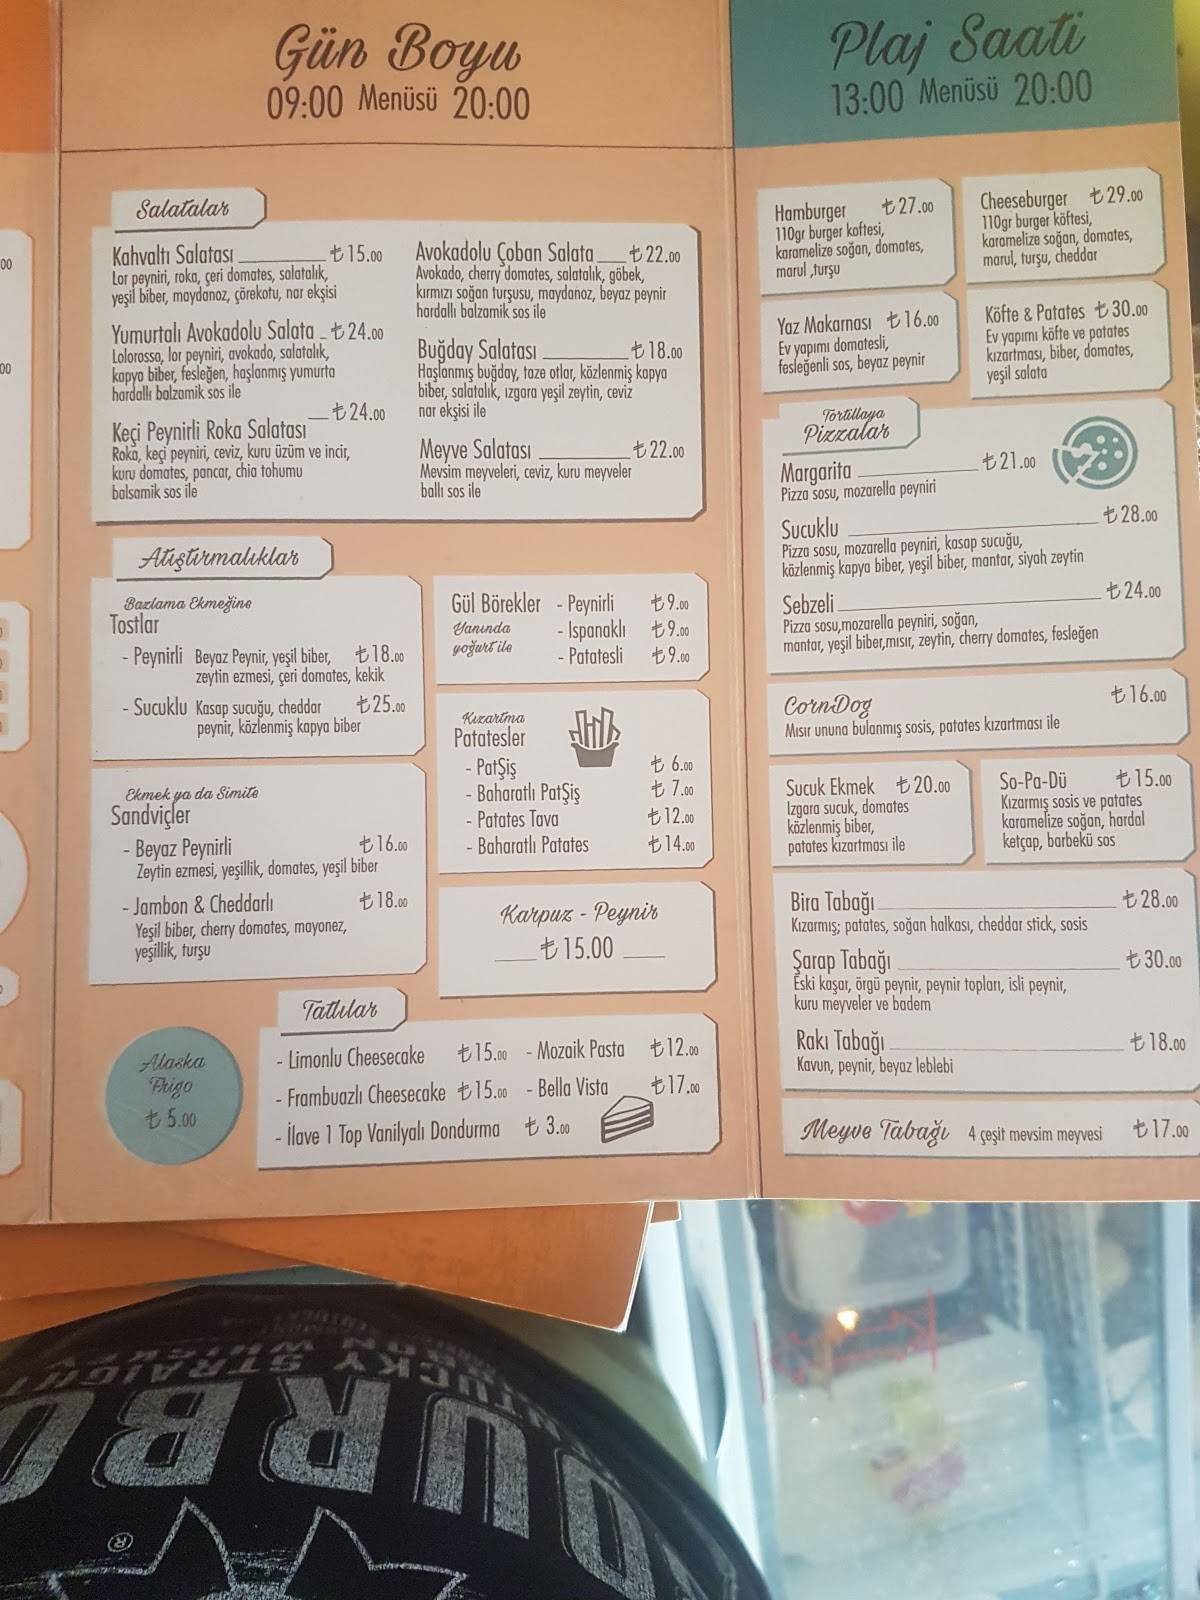 Gün Boyu
09:00 Menüsü 20:00
Salatalar
Kahvaltı Salatası ₺15.00
Lor peyniri, roka, çeri domates, salatalık,
yeşil biber, maydanoz, çörekotu, nar ekşisi
Yumurtalı Avokadolu Salata ₺24.00
Lolorosso, lor peyniri, avokado, salatalık,
kapya biber, fesleğen, haşlanmış yumurta
hardallı balzamik sos ile
₺24.00
Keçi Peynirli Roka Salatası
Roka, keçi peyniri, ceviz, kuru üzüm ve incir,
kuru domates, pancar, chia tohumu
balsamik sos ile
Avokadolu Çoban Salata ₺22.00
Avokado, cherry domates, salatalık, göbek,
kırmızı soğan turşusu, maydanoz, beyaz peynir
hardallı balzamik sos ile
Buğday Salatası ₺18.00
Haşlanmış buğday, taze otlar, közlenmiş kapya
biber, salatalık, ızgara yeşil zeytin, ceviz
nar ekşisi ile
Meyve Salatası ₺22.00
Mevsim meyveleri, ceviz, kuru meyveler
ballı sos ile
Atıştırmalıklar
Bazlama Ekmeğine
Tostlar
- Peynirli Beyaz Peynir, yeşil biber, ₺18.00
zeytin ezmesi, çeri domates, kekik
- Sucuklu Kasap sucuğu, cheddar ₺25.00
peynir, közlenmiş kapya biber
Ekmek ya da Simite
Sandviçler
- Beyaz Peynirli ₺16.00
Zeytin ezmesi, yeşillik, domates, yeşil biber
- Jambon & Cheddarlı ₺18.00
Yeşil biber, cherry domates, mayonez,
yeşillik, turşu
Gül Börekler - Peynirli ₺9.00
Yanında - Ispanaklı ₺9.00
yoğurt ile - Patatesli ₺9.00
Kızartma
Patatesler
- PatŞiş ₺6.00
- Baharatlı PatŞiş ₺7.00
- Patates Tava ₺12.00
- Baharatlı Patates ₺14.00
Karpuz - Peynir
₺15.00
Tatlılar
Alaska
Frigo
₺5.00
- Limonlu Cheesecake ₺15.00 - Mozaik Pasta ₺12.00
- Frambuazlı Cheesecake ₺15.00 - Bella Vista ₺17.00
- İlave 1 Top Vanilyalı Dondurma ₺3.00
Plaj Saati
13:00 Menüsü 20:00
Hamburger ₺27.00
110gr burger köftesi,
karamelize soğan, domates,
marul ,turşu
Cheeseburger ₺29.00
110gr burger köftesi,
karamelize soğan, domates,
marul, turşu, cheddar
Yaz Makarnası ₺16.00
Ev yapımı domatesli,
fesleğenli sos, beyaz peynir
Köfte & Patates ₺30.00
Ev yapımı köfte ve patates
kızartması, biber, domates,
yeşil salata
Tortillaya
Pizzalar
Margarita ₺21.00
Pizza sosu, mozarella peyniri
Sucuklu ₺28.00
Pizza sosu, mozarella peyniri, kasap sucuğu,
közlenmiş kapya biber, yeşil biber, mantar, siyah zeytin
Sebzeli ₺24.00
Pizza sosu,mozarella peyniri, soğan,
mantar, yeşil biber,mısır, zeytin, cherry domates, fesleğen
CornDog ₺16.00
Mısır ununa bulanmış sosis, patates kızartması ile
Sucuk Ekmek ₺20.00
Izgara sucuk, domates
közlenmiş biber,
patates kızartması ile
So-Pa-Dü ₺15.00
Kızarmış sosis ve patates
karamelize soğan, hardal
ketçap, barbekü sos
Bira Tabağı ₺28.00
Kızarmış; patates, soğan halkası, cheddar stick, sosis
Şarap Tabağı ₺30.00
Eski kaşar, örgü peynir, peynir topları, isli peynir,
kuru meyveler ve badem
Rakı Tabağı ₺18.00
Kavun, peynir, beyaz leblebi
Meyve Tabağı 4 çeşit mevsim meyvesi ₺17.00
STRAIGHT